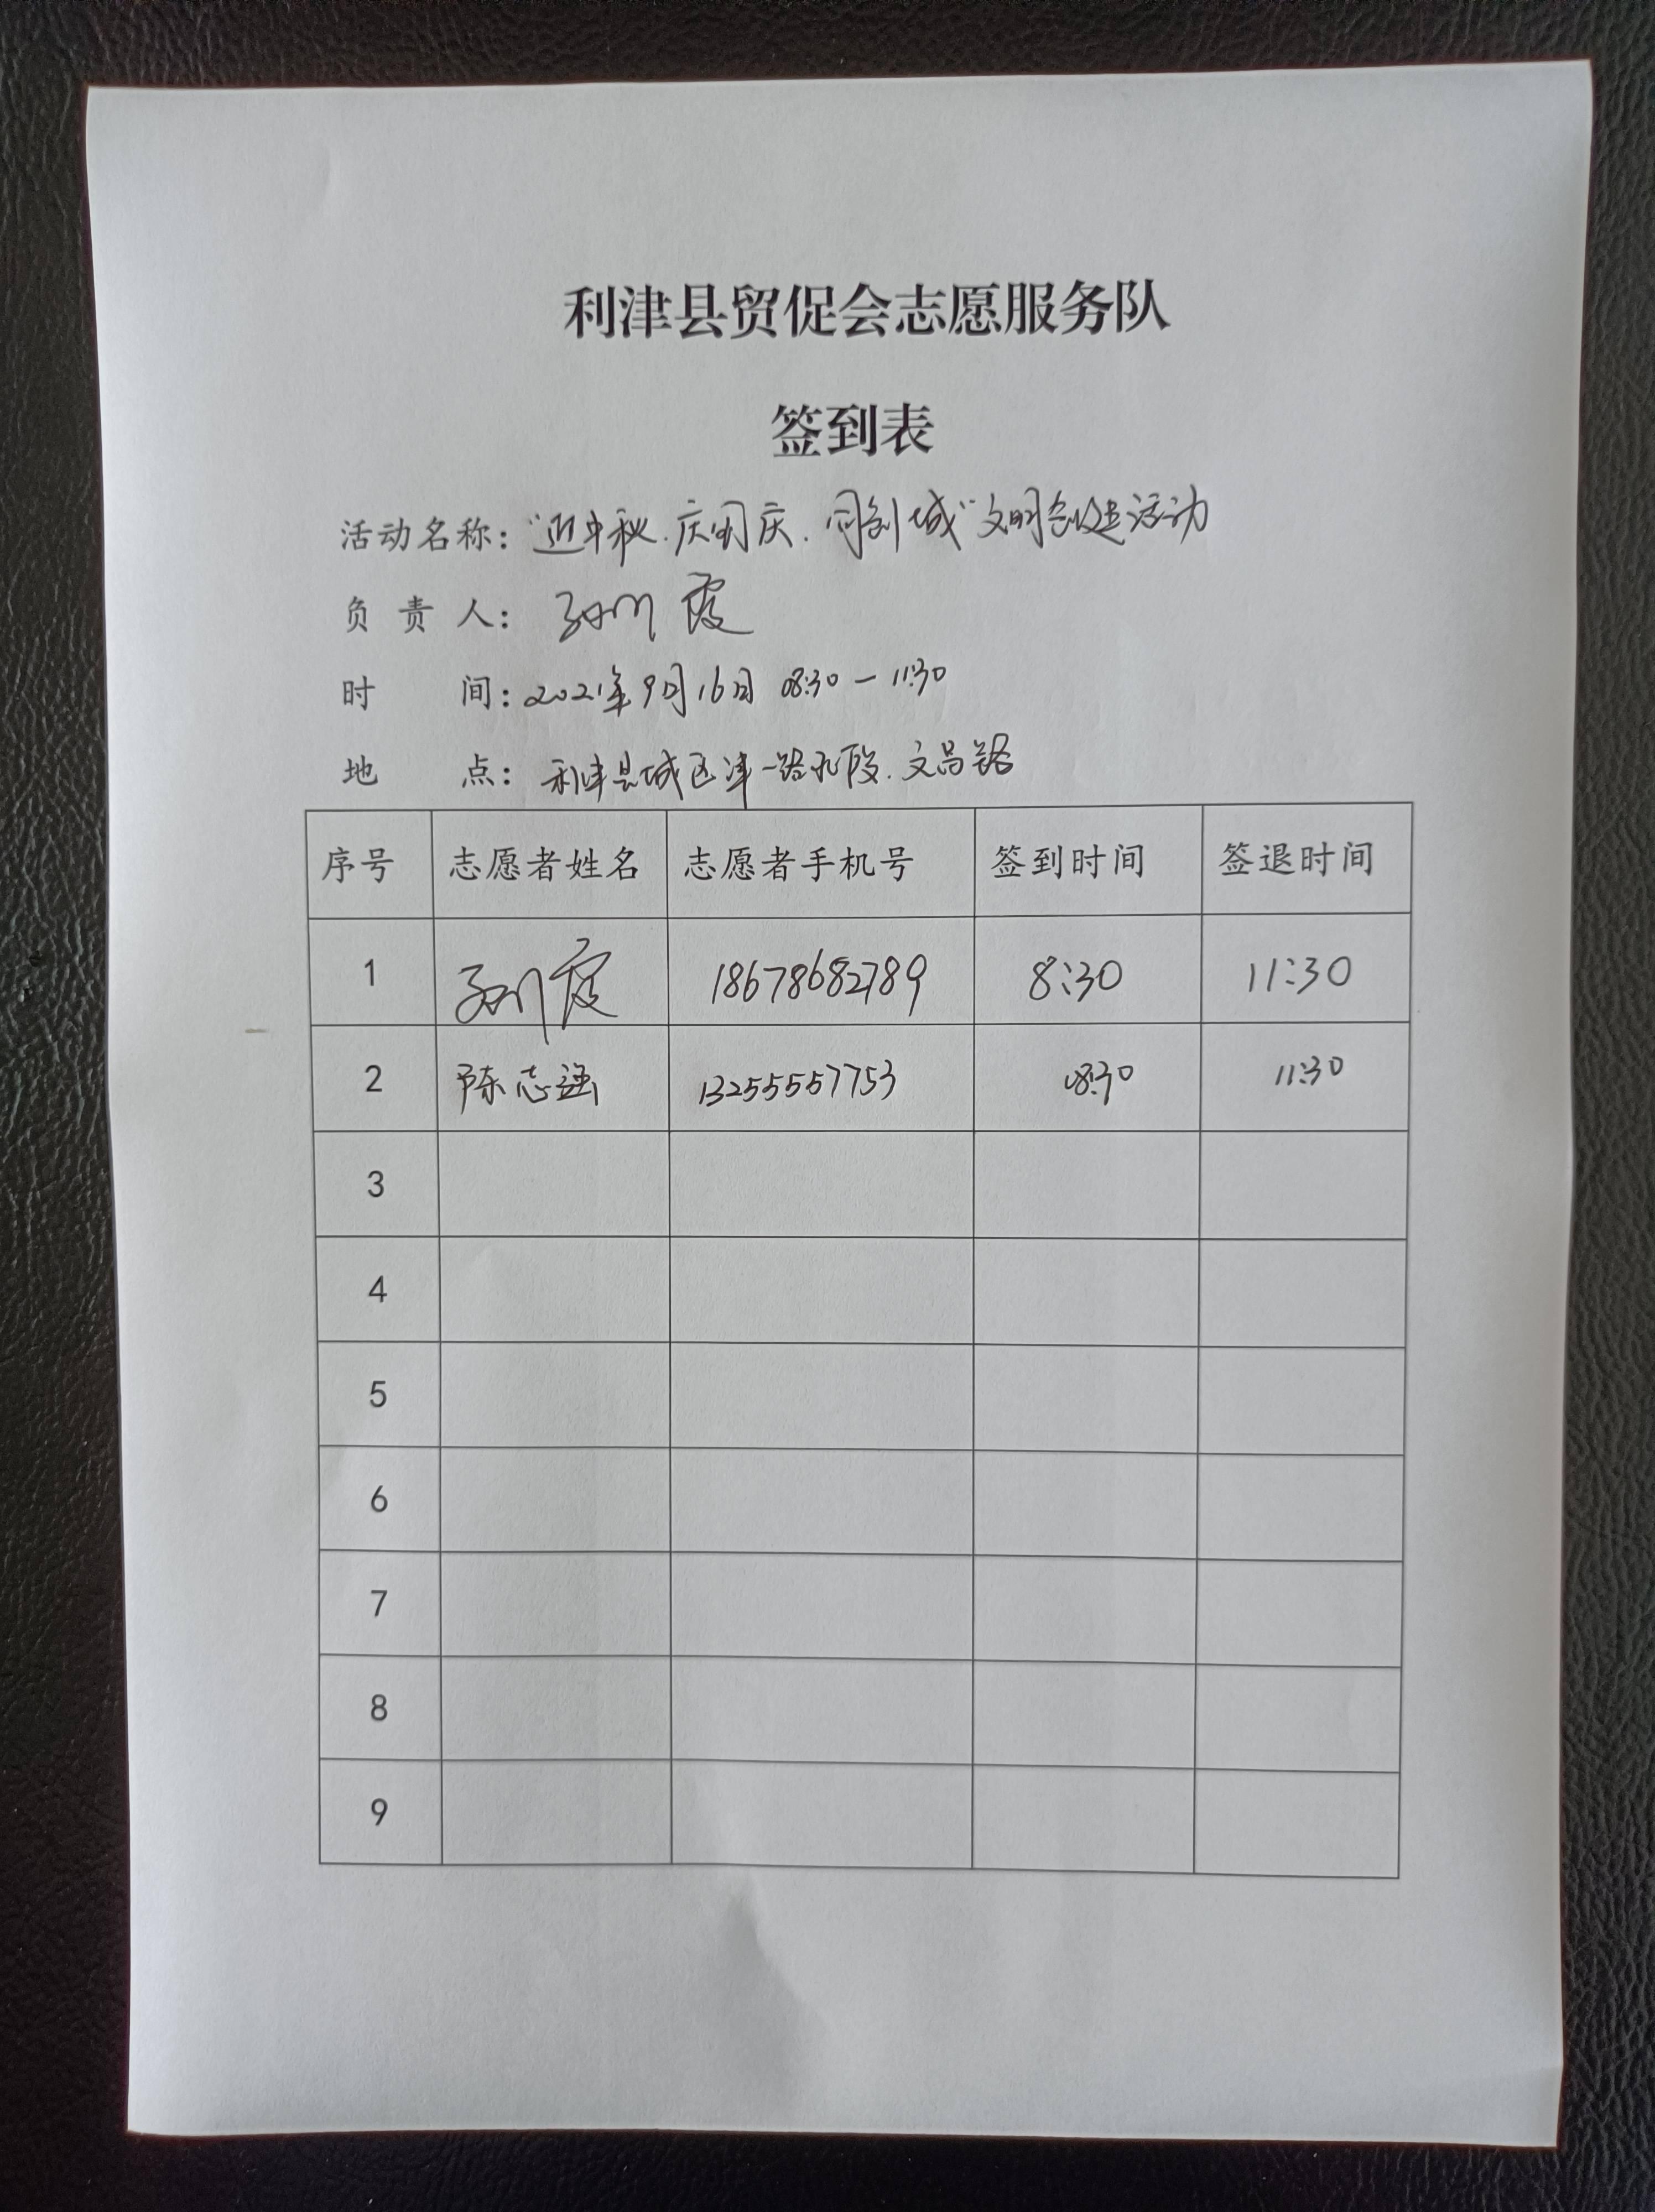 利津县贸促会志愿服务队
签到表
活动名称：“迎中秋.庆国庆.同创城”文明创建活动
负责人：霞
时间：2021年9月16日 08:30-11:30
地点：利津县城区津一路北段.文昌路
序号 志愿者姓名 志愿者手机号 签到时间 签退时间
1 霞 18678682789 8:30 11:30
2 陈志强 13255557753 08:30 11:30
3
4
5
6
7
8
9